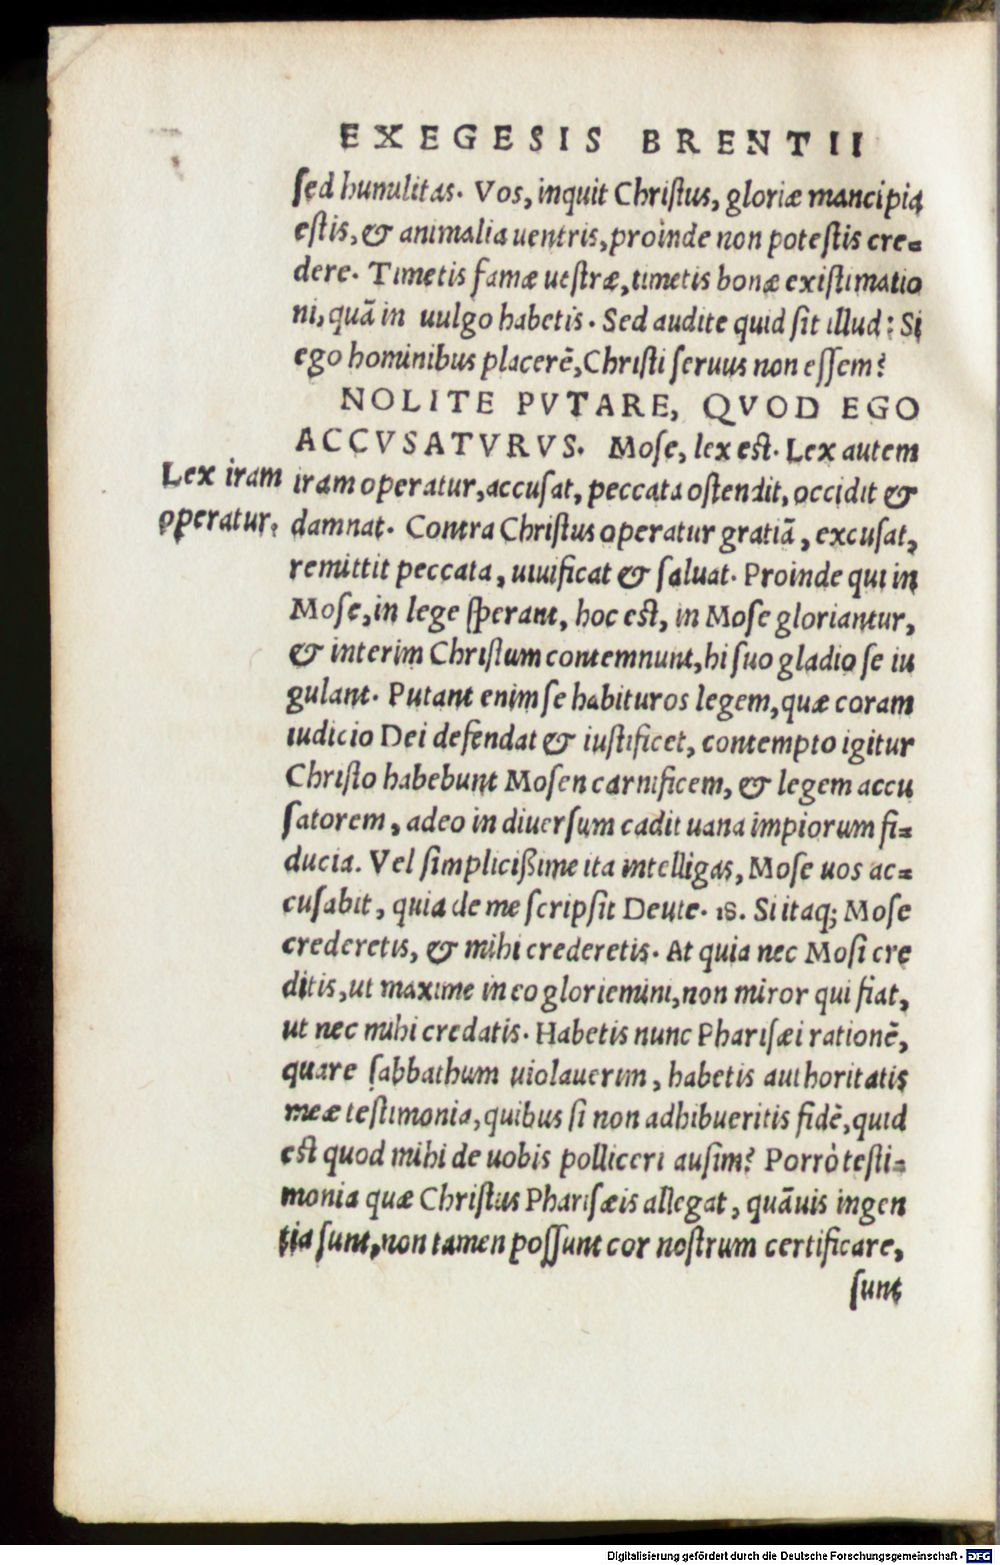 EXEGESIS BRENTII
sed humilitas. Vos, inquit Christus, gloriæ mancipia
estis, & animalia uentris, proinde non potestis cre=
dere. Timetis famæ uestræ, timetis bonæ existimatio
ni, quã in uulgo habetis. Sed audite quid sit illud: Si
ego hominibus placerẽ, Christi seruus non essem?
NOLITE PVTARE, QVOD EGO
ACCVSATVRVS. Mose, lex est. Lex autem
Lex iram
operatur.
iram operatur, accusat, peccata ostendit, occidit &
damnat. Contra Christus operatur gratiã, excusat,
remittit peccata, uiuificat & saluat. Proinde qui in
Mose, in lege sperant, hoc est, in Mose gloriantur,
& interim Christum contemnunt, hi suo gladio se iu
gulant. Putant enim se habituros legem, quæ coram
iudicio Dei defendat & iustificet, contempto igitur
Christo habebunt Mosen carnificem, & legem accu
satorem, adeo in diuersum cadit uana impiorum fi=
ducia. Vel simplicißime ita intelligas, Mose uos ac=
cusabit, quia de me scripsit Deute. 18. Si itaq; Mose
crederetis, & mihi crederetis. At quia nec Mosi cre
ditis, ut maxime in eo gloriemini, non miror qui fiat,
ut nec mihi credatis. Habetis nunc Pharisæi rationẽ,
quare sabbathum uiolauerim, habetis authoritatis
meæ testimonia, quibus si non adhibueritis fidẽ, quid
est quod mihi de uobis polliceri ausim? Porrò testi=
monia quæ Christus Pharisæis allegat, quãuis ingen
tia sunt, non tamen possunt cor nostrum certificare,
sunt
Digitalisierung gefördert durch die Deutsche Forschungsgemeinschaft - DFG